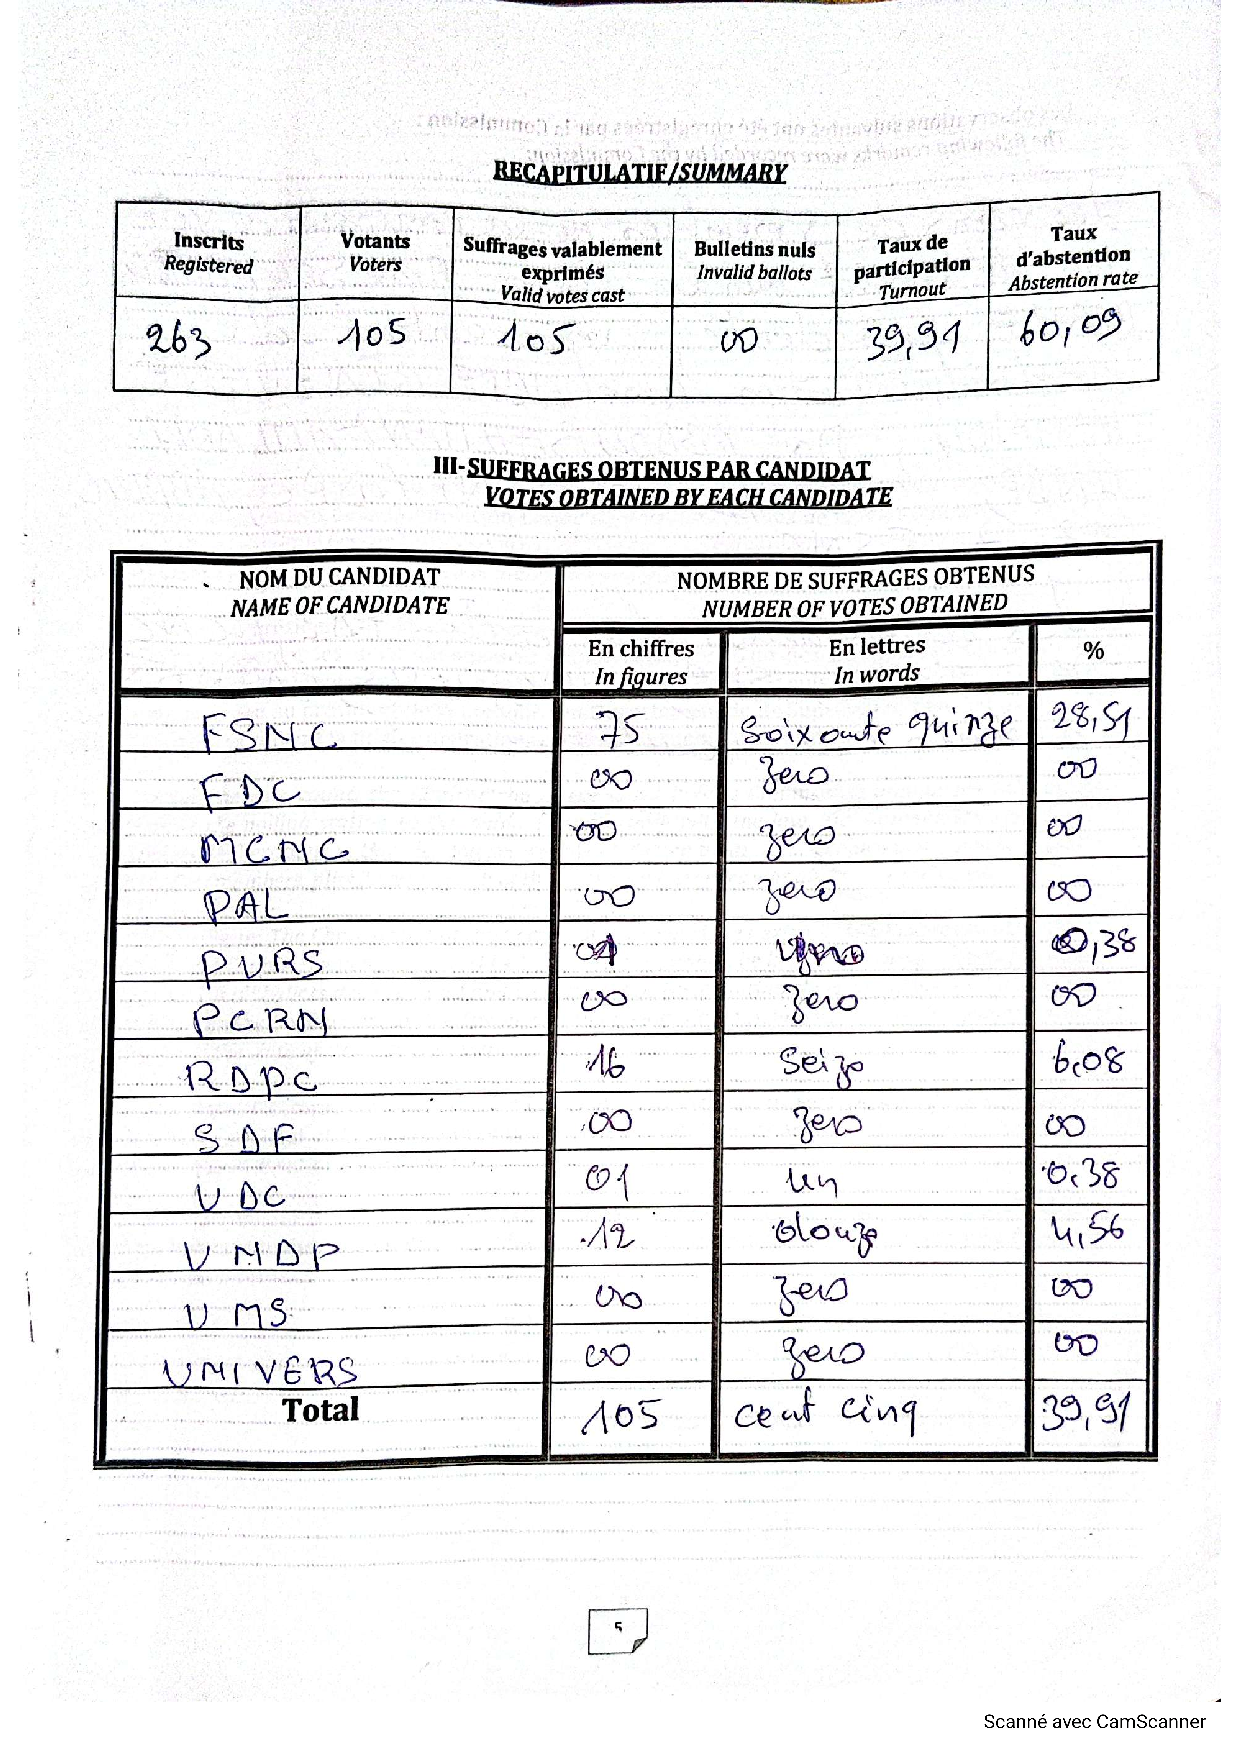 RECAPITULATIF/SUMMARY
Inscrits
Registered
Votants
Voters
Suffrages valablement
exprimés
Valid votes cast
Bulletins nuls
Invalid ballots
Taux de
participation
Turnout
Taux
d'abstention
Abstention rate
263 105 105 00 39,91 60,09
III-SUFFRAGES OBTENUS PAR CANDIDAT
VOTES OBTAINED BY EACH CANDIDATE
NOM DU CANDIDAT
NAME OF CANDIDATE
NOMBRE DE SUFFRAGES OBTENUS
NUMBER OF VOTES OBTAINED
En chiffres
In figures
En lettres
In words
%
FSNC 75 Soixante quinze 28,51
FDC 00 Zero 00
MCNC 00 zero 00
PAL 00 zero 00
PURS 01 0,38
PCRN 00 Zero 00
RDPC 16 Seize 6,08
SDF 00 Zero 00
UDC 01 un 0,38
UNDP 12 douze 4,56
UMS 00 Zero 00
UNIVERS 00 Zero 00
Total 105 cent cinq 39,91
5
Scanné avec CamScanner